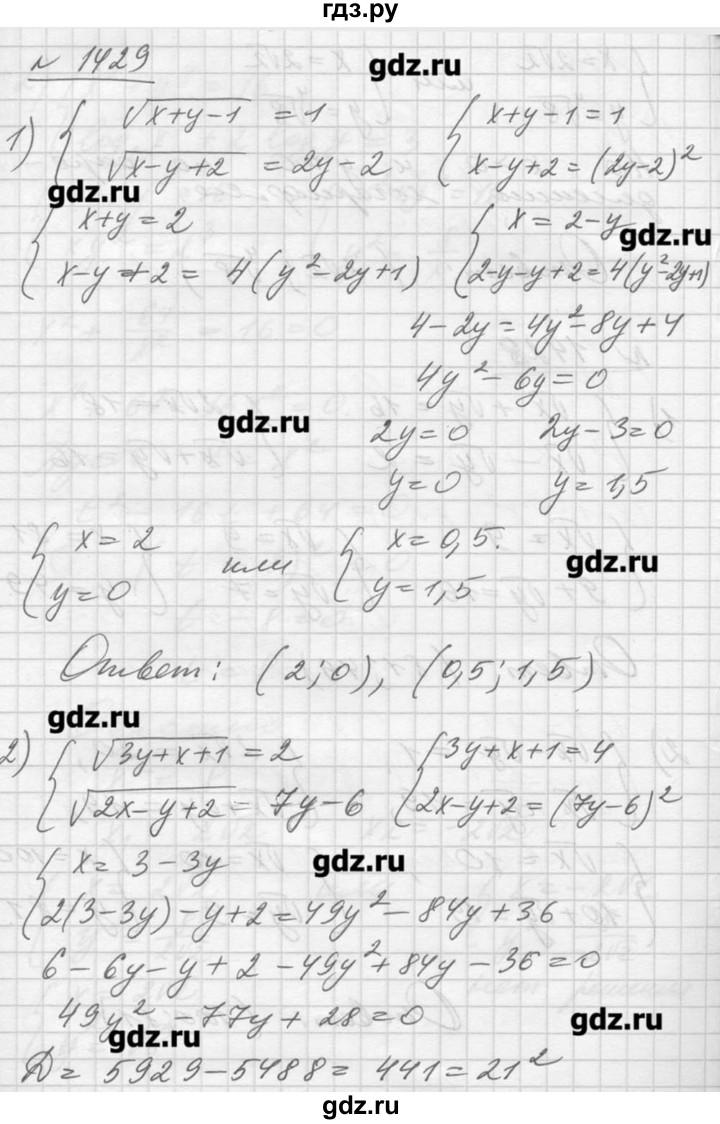 гдз.ру
№ 1429
gdz.ru
1) { √(x+y-1) = 1 { x+y-1=1
√(x-y+2) = 2y-2 x-y+2=(2y-2)²
gdz.ru
{ x+y=2 { x=2-y
gdz.ru
x-y+2= 4(y²-2y+1) 2-y-y+2=4(y²-2y+1)
4-2y=4y²-8y+4
4y²-6y=0
gdz.ru
2y=0 2y-3=0
y=0 y=1,5
{ x=2 или { x=0,5.
y=0 y=1,5
gdz.ru
Ответ: (2;0), (0,5;1,5)
gdz.ru
2) { √(3y+x+1) = 2 { 3y+x+1=4
√(2x-y+2) = 7y-6 2x-y+2=(7y-6)²
{ x= 3-3y
gdz.ru
2(3-3y)-y+2=49y²-84y+36
6-6y-y+2-49y²+84y-36=0
49y²-77y+28=0
gdz.ru
gdz.ru
D= 5929-5488= 441=21²
gdz.ru